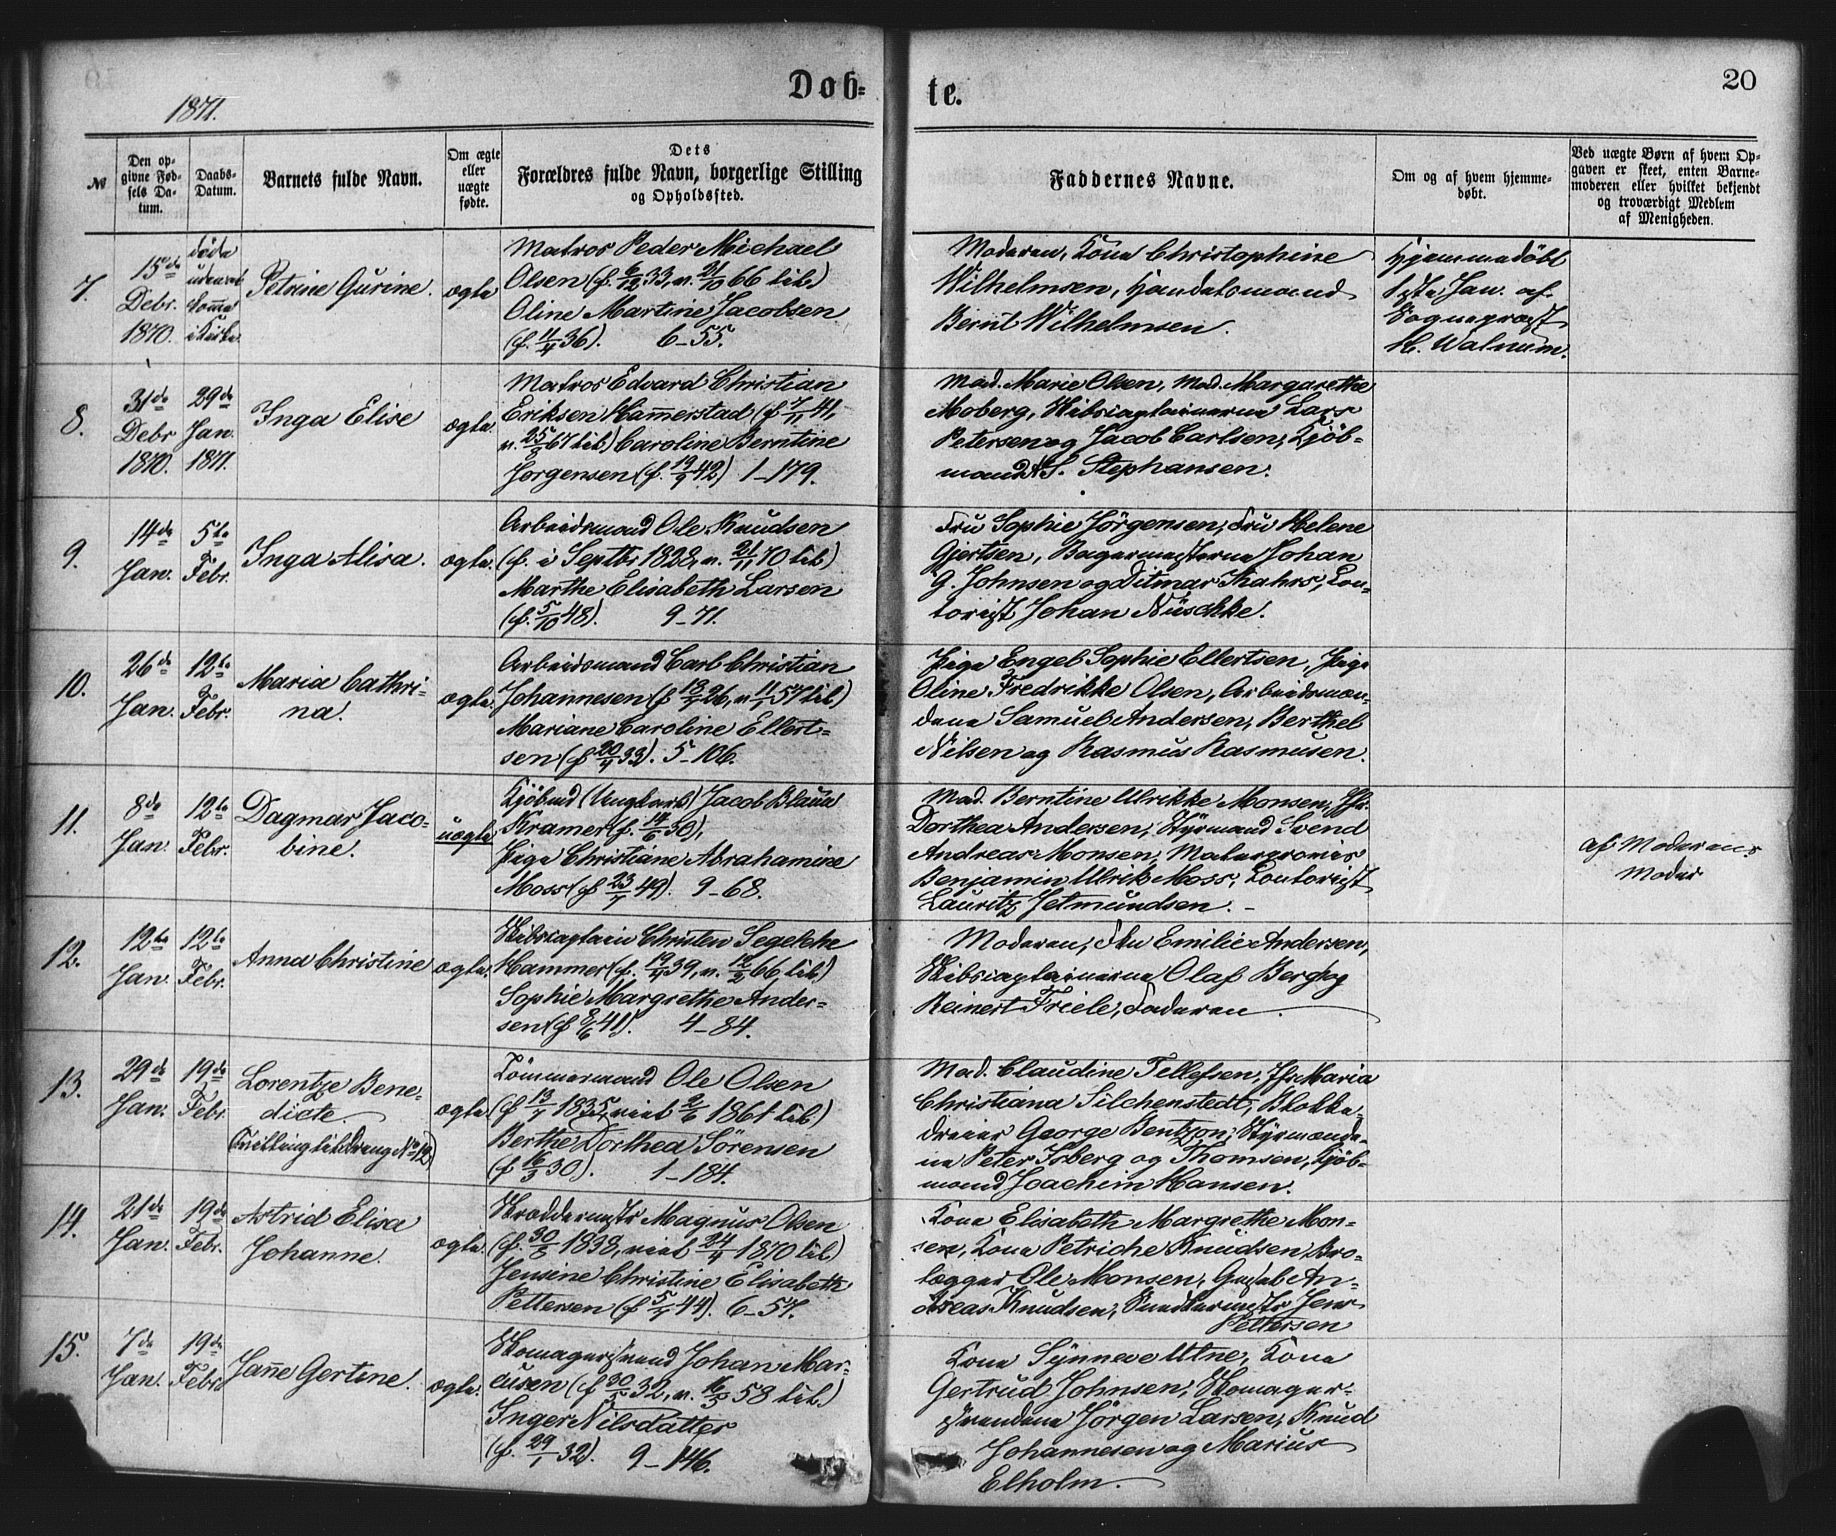 1871.
Døb=
te.
20
№
Den op-
givne Fød-
sels Da-
tum.
Daabs-
Datum.
Barnets fulde Navn.
Om ægte
eller
uægte
fødte.
Dets
Forældres fulde Navn, borgerlige Stilling
og Opholdssted.
Faddernes Navne.
Om og af hvem hjemme-
døbt.
Ved uægte Børn af hvem Op-
gaven er skeet, enten Barne-
moderen eller hvilket bekjendt
og troværdigt Medlem
af Menigheden.
7.
15de
Debr.
1870.
døde
uden at
komme
i Kirke.
Petrine Gurine.
ægte
Matros Peder Michael
Olsen (f. 6/12 33, v. 21/10 66 til)
Oline Martine Jacobsen
(f. 11/4 36). 6-55.
Moderen, Kone Christophine
Wilhelmsen, Handelsmand
Bernt Wilhelmsen.
Hjemmedöbt
Jan. af
Sognepræst
H. Walnum.
8.
31de
Debr
1870.
29de
Jan.
1871.
Inga Elise
ægte
Matros Edvard Christian
Eriksen Hamerstad (f. 7/11 41,
v. 25/8 67 til) Caroline Berntine
Jørgensen (f. 19/9 42) 1-179.
Mad. Marie Olsen, Mad. Margarethe
Moberg, Skibscaptainerne Lars
Petersen og Jacob Carlsen, Kjöb-
mand A S. Stephansen.
9.
14de
Jan.
5te
Febr.
Inga Alisa.
ægte.
Arbeidsmand Ole Knudsen
(f. i Septbr 1828, v. 21/11 70 til)
Marthe Elisabeth Larsen
(f. 5/10 48). 9-71.
Fru Sophie Jörgensen, Fru Helene
Gjertsen, Bagermesterne Johan
G. Johnsen og Ditmar Kahrs, Con-
torist Johan Nüschke.
10.
26de
Jan.
12te
Febr.
Maria Cathri-
na.
ægte.
Arbeidsmand Carl Christian
Johannesen (f 18/7 26, v. 11/1 57 til)
Mariane Caroline Ellert-
sen (f 20/4 33). 5-106.
Pige Engel Sophie Ellertsen, Pige
Oline Fredrikke Olsen, Arbeidsmæn-
dene Samuel Andersen, Berthel
Nilsen og Rasmus Rasmusen.
11.
8de
Jan.
12te
Febr.
Dagmar Jaco-
bine.
uægte
Kjöbmd (Ungkarl) Jacob Blauw
Kramer (f. 14/6 30),
Pige Christiane Abrahamine
Moss (f 23/7 49). 9-68.
Mad. Berntine Ulrikke Monsen, Jfr.
Dorthea Andersen, Styrmand Svend
Andreas Monsen,
Benjamin Ulrik Moss, Contorist
Lauritz Jetmundsen.
af Moderens
Moder
12.
12te
Jan.
12te
Febr.
Anna Christine
ægte.
Skibscaptain Christen Segelcke
Hammer (f. 19/4 39, v. 12/2 66 til)
Sophie Margrethe Ander-
sen (f 8/6 41). 4-84.
Moderen, Fru Emilie Andersen,
Skibscaptainerne Olaf Berg og
Reinert Friele, Faderen.
13.
29de
Jan.
19de
Febr.
Lorentze Bene-
dicte
(Tvilling til Dreng No 12)
ægte
Tömmermand Ole Olsen
(f 13/7 1835, viet 2/6 1861 til)
Berthe Dorthea Sörensen
(f 16/3 30). 1-184.
Mad. Claudine Tellefsen, Jfr Maria
Christiana Silchenstedt, Blokke-
dreier George Bentzon, Styrmænde-
ne Peter Isberg og Thomsen, Kjöb-
mand Joachim Hansen.
14.
21de
Jan.
19de
Febr.
Astrid Elisa
Johanne.
ægte.
Skræddermester Magnus Olsen
(f. 30/5 1838, viet 24/4 1870 til)
Jensine Christine Elisabeth
Pettersen (f 5/7 44). 6-57.
Kone Elisabeth Margrethe Mon-
sen, Kone Petriche Knudsen, Bro-
lægger Ole Monsen, Gesel An-
dreas Knudsen, Jens
Pettersen
15.
7de
Jan.
19de
Febr.
Jane Gertine.
ægte.
Skomagersvend Johan Mar-
cusen (f 30/5 32, v. 16/5 58 til)
Inger Nilsdatter
(f. 29/1 32). 9-146.
Kone Synneve Utne, Kone
Gertrud Johnsen, Skomager-
svendene Jørgen Larsen, Knud
Johannesen og Marius
Elholm.